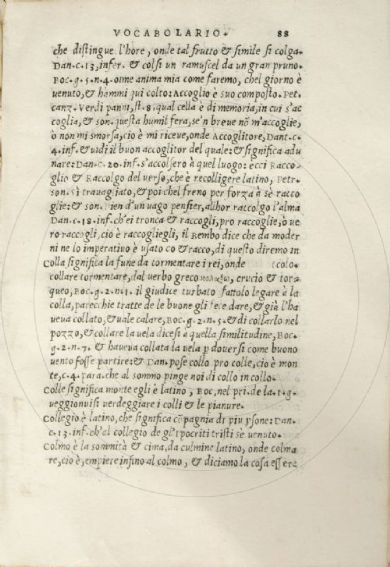 VOCABOLARIO. 88
che distingue l'hore, onde tal frutto & simile si colga.
Dan. c. 13. infer. & colsi un ramuscel da un gran pruno.
Boc. g. 5. n. 4. oime anima mia come faremo, chel giorno è
uenuto, & hammi qui colto: Accoglio è suo composto. Pet.
canz. Verdi panni, st. 8. qual cella è di memoria, in cui s'ac
coglia, & son. questa humil fera, se'n breue nõ m'accoglie,
o non mi smorsa, ciò è mi riceue, onde Accoglitore, Dant. c.
4. inf. & uidi il buon accoglitor del quale: & significa adu
nare: Dan. c. 20. inf. s'accolsero à quel luogo: ecci Racco
glio & Raccolgo del uerso, che è recolligere latino, Petr.
son. Sì trauagliato, & poi chel freno per forza à se racco
glie: & son. Pien d'un uago pensier, allhor raccolgo l'alma
Dan. c. 18. inf. ch'ei tronca & raccogli, pro raccoglie, o ue
ro raccogli, ciò è raccogliegli, il Bembo dice che da moder
ni ne lo imperatiuo è usato co & racco, di questo diremo in
Colla significa la fune da tormentare i rei, onde colo.
collare tormentare, dal uerbo greco crucio & tor
queo, Boc. g. 2. n. 1. il giudice turbato fattolo legare à la
colla, parecchie tratte de le buone gli fece dare, & già l'ha
ueua collato, & uale calare, Boc. g. 2. n. 5. & di collarlo nel
pozzo, & collare la uela dicesi à quella similitudine, Boc.
g. 2. n. 7. & haueua collata la uela p douersi come buono
uento fosse partire: & Dan. pose collo pro colle, cio è mon
te, c. 4. para. che al sommo pinge noi di collo in collo.
Colle significa monte egli è latino, Boc. nel pri. de la. 1. g.
ueggionuisi uerdeggiare i colli & le pianure.
Collegio è latino, che significa cõpagnia di piu psone: Dan.
c. 13. inf. ch'al collegio de gl'ipocriti tristi se uenuto.
Colmo è la sommità & cima, da culmine latino, onde colma
re, cio è, empiere infino al colmo, & diciamo la cosa essere